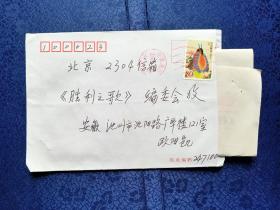 100023
北京 2304信箱
《胜利之歌》编委会 收
安徽 池州市池阳路广华楼121室
欧阳凯
邮政编码 247100
80